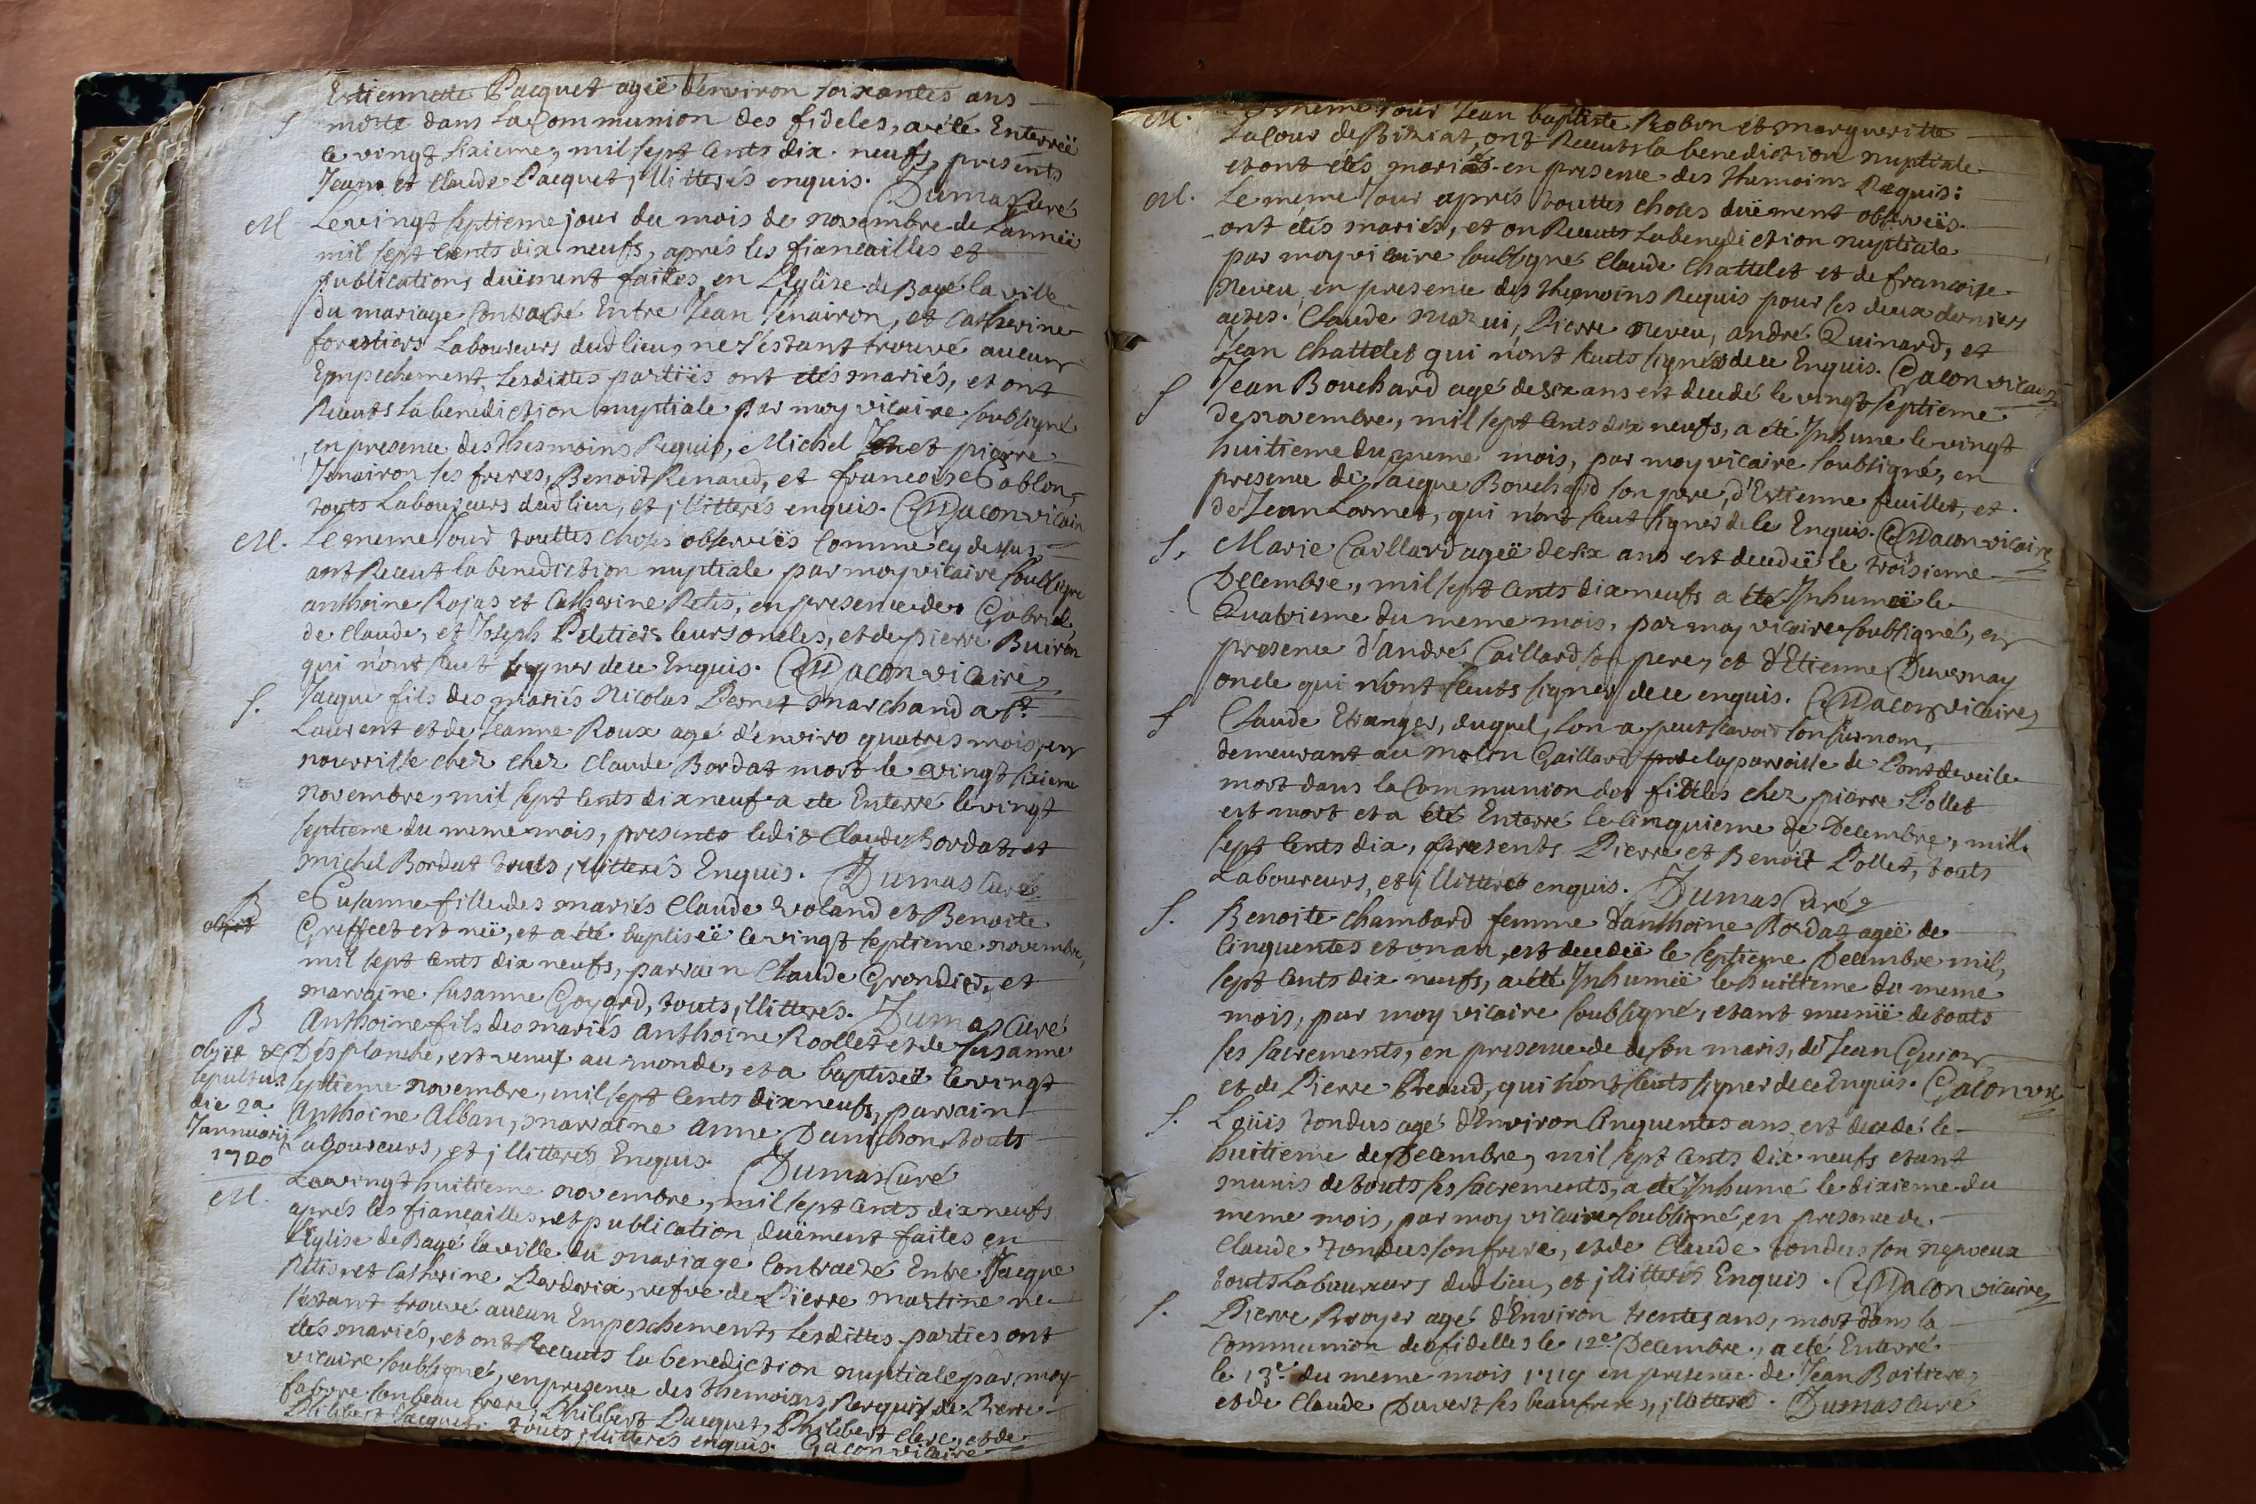 Estiennette Pacquet ageë d'environ soixantes ans
S morte dans La Communion des fideles, a été Enterreë
le vingt sixieme, mil sept Cents dix neufs, presents
Jean et Claude Pacquet, illitterés enquis. Dumas Curé
M Le vingt septieme jour du mois de novembre de Lanneë
mil sept Cents dix neufs, aprés les fiancailles et
publications duëment faites en L'Eglise de Bagé la ville
du mariage Contracté Entre Jean , et Catherine
forestiers Laboureurs dud lieu, ne s'estant trouvé aucun
Empechement, Lesdittes partiës ont etés mariés, et ont
Receuts La benediction nuptiale par moy vicaire soubsigné
en presence des thesmoins Requis, Michel et pierre
ses freres, Benoit Renaud, et francoise
touts Laboureurs dud lieu, et illitterés enquis. Gacon vicaire
M. Le meme Jour touttes choses observeës Comme cy dessus
ont Receut la benediction nuptiale par moy vicaire soubsigné
anthoine Rojas et Catherine Petis, en presence de Gabriel
de Claude, et Joseph Peletier leurs oncles, et de pierre Buiron
qui n'ont sceut signer de ce Enquis. Gacon vicaire
S. Jacque fils des mariés Nicolas Pernet marchand a St
Laurent et de Jeanne Roux agé d'enviro quatres mois, en
nourrisse chez chez Claude Bordat mort le vingt sixieme
novembre, mil sept Cents dix neuf a ete Enterré le vingt
septieme du meme mois, presents ledit Claude Bordat, et
michel Bordat touts illitterés Enquis. Dumas Curé
B Susanne fille des mariés Claude Voland et Benoite
obiit Greffet est neë, et a été baptiseë le vingt septieme novembre,
mil sept Cents dix neufs, parrain Claude Grondier, et
marraine susanne Goyard, touts illitterés. Dumas Curé
B Anthoine fils des mariés anthoine Roollet et de susanne
obiit & Desplanche, est venu au monde, et a baptiseë le vingt
sepultus septieme novembre, mil sept Cents dix neufs, parrain
die 2a Anthoine Alban, marraine anne Danichon, touts
Jannuarij Laboureurs, et illitterés Enquis. Dumas Curé
1720
M. Le vingt huitieme novembre, mil sept Cents dix neufs
aprés les fiancailles et publication duëment faites en
l'Eglise de Bagé la ville du mariage Contracté Entre Jacque
Petis et Catherine , vefve de Pierre martine ne
s'estant trouvé aucun Empeschement, Lesdittes parties ont
étés mariés, et ont Receuts la benediction nuptiale par moy
vicaire soubsigné, en presence des themoins Requis de Pierre
fabvre son beau frere, Philibert Pacquet, Philibert Clerc, et de
Philibert Jacquet, touts illitterés enquis. Gacon vicaire
M. Le meme Jour Jean baptiste Robin et margueritte
Lacour de Biziat, ont Receuts la benediction nuptiale
et ont étés mariés en presence des themoins Requis:
M. Le meme Jour aprés touttes choses duëment observeës.
ont étés mariés, et on Receuts La benediction nuptiale
par moy vicaire soubsigné Claude Chattelet et de francoise
Neveu, en presence des themoins Requis pour les deux derniers
actes. Claude Mazui, Pierre neveu, andré Quinard, et
Jean Chattelet qui n'ont sceuts signer de ce Enquis. Gacon vicaire
S Jean Bouchard agé de six ans est decedé le vingt septieme
de novembre, mil sept Cents dix neufs, a été Inhume le vingt
huitieme du meme mois, par moy vicaire soubsigné, en
presence de Jacque Bouchard son pere, d'Estienne feuillet, et
de Jean Lormet, qui n'ont sceut signer de ce Enquis. Gacon vicaire
S. Marie Caillard ageë de six ans est decedeë le troisieme
Decembre, mil sept Cents dix neufs a été Inhumeë le
Quatrieme du meme mois, par moy vicaire soubsigné, en
presence d'andré Caillard son pere, et d'Etienne Duvernay
oncle qui n'ont sceuts signer de ce enquis. Gacon vicaire
S Claude Etranger, duquel, l'on a peut scavoir son surnom,
demeurant au molin Gaillard de la parroisse de Pontdeveile
mort dans la Communion des fideles chez pierre Pollet
est mort et a été Enterré le Cinquieme de Decembre, mill
sept Cents dix, presents Pierre et Benoit Pollet, touts
Laboureurs, et illitterés enquis. Dumas Curé
S. Benoite Chambard femme d'anthoine Bordat ageë de
Cinquentes et on an, est decedeë le septieme Decembre mil,
sept Cents dix neufs, a été Inhumeë le huitieme du meme
mois, par moy vicaire soubsigné, etant munië de touts
ses sacrements, en presence de de son maris, de Jean Guion
et de Pierre Breaud, qui n'ont sceuts signer de ce Enquis. Gacon vic
S. Loüis tondus agé d'Environ Cinquentes ans est decedé le
huitieme de Decembre, mil sept Cents dix neufs etant
munis de touts ses sacrements, a été Inhumé le dixieme du
meme mois, par moy vicaire soubsigné, en presence de
Claude Tondus son frere, et de Claude tondus son nepveux
touts Laboureurs dud lieu, et illitterés Enquis. Gacon vicaire
S. Pierre Broyer agé d'Environ trentes ans, mort dans la
Communion des fidelles le 12e Decembre, a été Enterré
le 13e du meme mois 1719 en presence de Jean Boitiere,
et de Claude Duvert ses beaufreres, illitterés. Dumas Curé